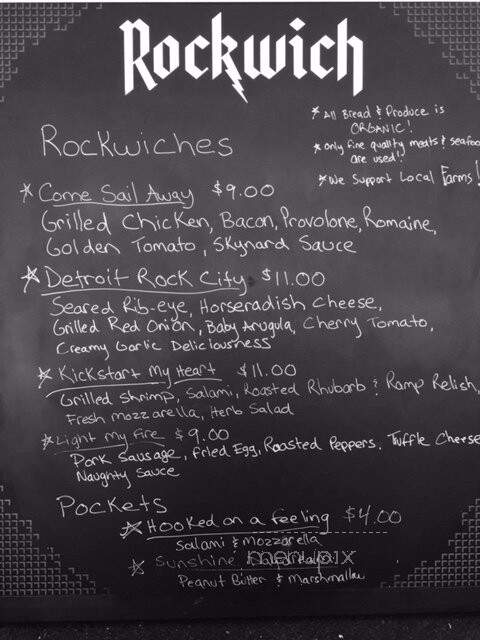 Rockwich
* All Bread & Produce is
ORGANIC!
* Only fine quality meats & seafoo
are used!
* We Support Local Farms!
Rockwiches
* Come Sail Away $9.00
Grilled Chicken, Bacon, Provolone, Romaine,
Golden Tomato, Skynard Sauce
* Detroit Rock City $11.00
Seared Rib-eye, Horseradish Cheese,
Grilled Red Onion, Baby Arugula, Cherry Tomato,
Creamy Garlic Deliciousness
* Kickstart My Heart $11.00
Grilled Shrimp, Salami, Roasted Rhubarb & Ramp Relish,
Fresh Mozzarella, Herb Salad
* Light My Fire $9.00
Pork Sausage, Fried Egg, Roasted Peppers, Truffle Cheese
Naughty Sauce
Pockets
* Hooked on a feeling $4.00
Salami & Mozzarella
* Sunshine
Peanut Butter & Marshmallow